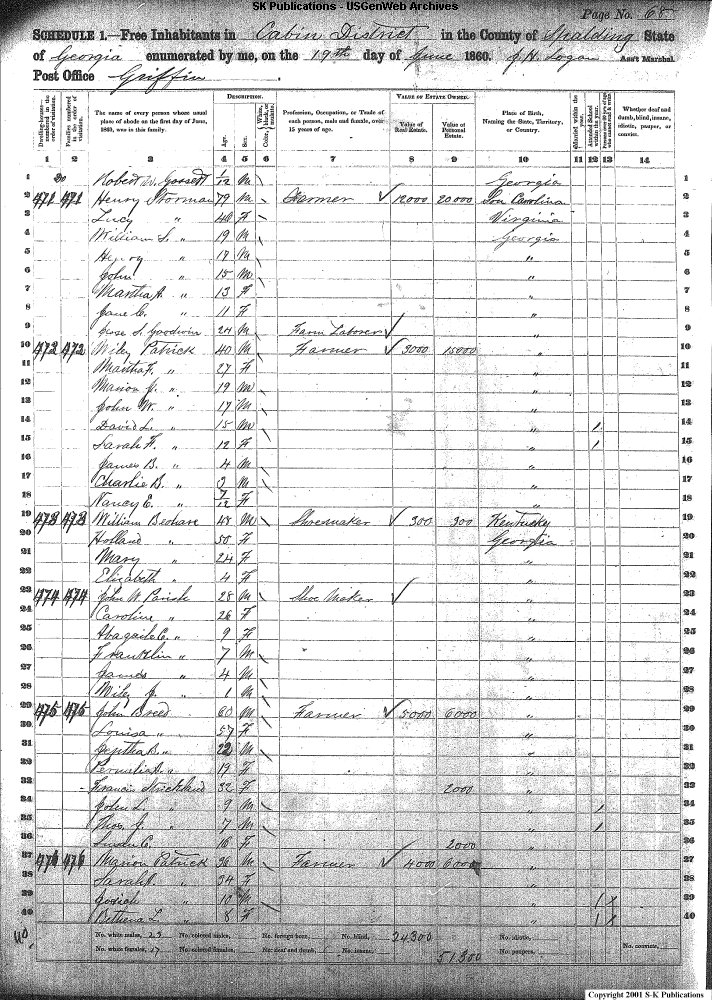 SK Publications - USGenWeb Archives
Page No. 68
SCHEDULE 1.—Free Inhabitants in Cabin District in the County of Spalding State
of Georgia enumerated by me, on the 19th day of June 1860. J. H. Logan Ass't Marshal.
Post Office Griffin.
Dwelling-houses— numbered in the order of visitation. Families numbered in the order of visitation. The name of every person whose usual place of abode on the first day of June, 1860, was in this family. DESCRIPTION. Age. Sex. Color, White, black, or mulatto. Profession, Occupation, or Trade of each person, male and female, over 15 years of age. VALUE OF ESTATE OWNED. Value of Real Estate. Value of Personal Estate. Place of Birth, Naming the State, Territory, or Country. Married within the year. Attended School within the year. Whether deaf and dumb, blind, insane, idiotic, pauper, or convict.
1 2 3 4 5 6 7 8 9 10 11 12 13 14
1 Robert W. Gossett 1/12 M Georgia 1
2 471 471 Henry Storman 79 M Farmer 12000 20000 Sou Carolina 2
3 Lucy " F Virginia 3
4 William S. " 19 M Georgia 4
5 Henry " 17 M " 5
6 John " 15 M " 6
7 Martha A. " 13 F " 7
8 Jane C. " 11 F " 8
9 Goodwin 24 M Farm Laborer " 9
10 472 472 Wiley Patrick 40 M Farmer 3000 15000 " 10
11 Martha F. " 27 F " 11
12 Marion J. " 19 M " 12
13 John W. " 17 M " 13
14 David L. " 15 M " / 14
15 Sarah F. " 12 F " / 15
16 James B. " 4 M " 16
17 Charlie B. " 3 M " 17
18 Nancy E. " 7/12 F " 18
19 473 473 William 48 M Shoemaker 300 300 Kentucky 19
20 Holland " 50 F Georgia 20
21 Mary " 24 F " 21
22 Elizabeth " 4 F " 22
23 474 474 John W. Parish 28 M Shoe Maker " 23
24 Caroline " 26 F " 24
25 Abagaile C. " 9 F " 25
26 Franklin " 7 M " 26
27 James " 4 M " 27
28 Wiley J. " 1 M " 28
29 475 475 John Breed 60 M Farmer 5000 6000 " 29
30 Louisa " 57 F " 30
31 Jeptha B. " 22 M " 31
32 Permelia A. " 19 F " 32
33 Francis Strickland 32 F 2000 " 33
34 John L. " 9 M " / 34
35 Thos. J. " 7 M " / 35
36 Susan C. " 10 F 2000 " 36
37 476 476 Marion Patrick 36 M Farmer 4000 6000 " 37
38 Sarah " 34 F " 38
39 Josiah " 10 M " / X 39
40 Bethena L. " 8 F " / X 40
No. white males, 23 No. colored males, No. foreign born, No. blind, 24300 No. idiotic,
No. white females, 17 No. colored females, No. deaf and dumb, No. insane, 51300 No. paupers, No. convicts,
Copyright 2001 S-K Publications